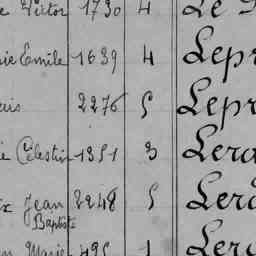 Victor 1730 4 Le
ie Emile 1639 4 Lepr
uis 2276 5 Lepr
ie Célestin 1351 3 Lero
x Jean Baptiste 2248 5 Lero
n Marie 495 1 Lero